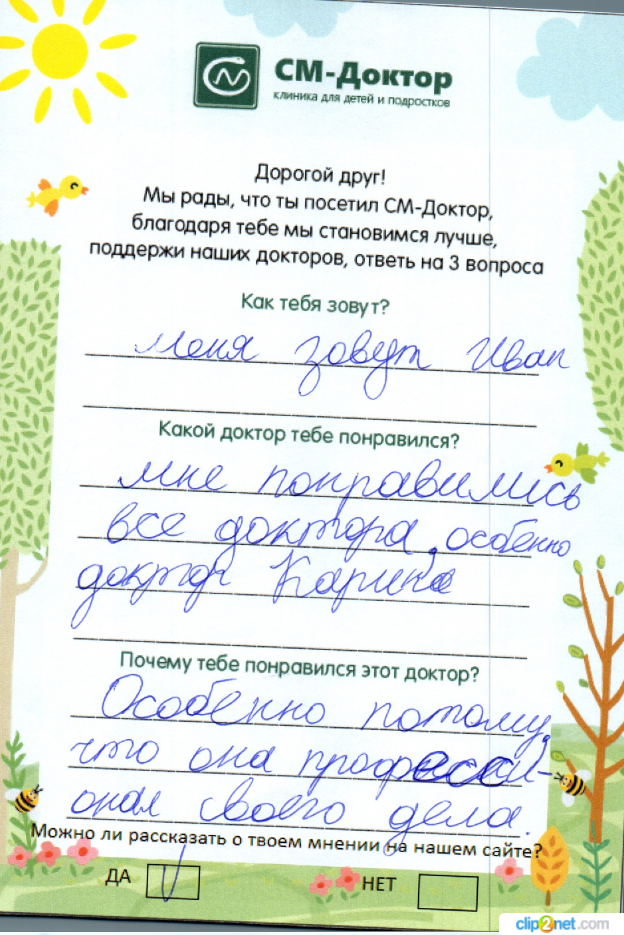 СМ-Доктор
клиника для детей и подростков
Дорогой друг!
Мы рады, что ты посетил СМ-Доктор,
благодаря тебе мы становимся лучше,
поддержи наших докторов, ответь на 3 вопроса
Как тебя зовут?
меня зовут Иван
Какой доктор тебе понравился?
мне понравились
все доктора, особенно
доктор Карина
Почему тебе понравился этот доктор?
Особенно потому,
что она професси-
онал своего дела.
Можно ли рассказать о твоем мнении на нашем сайте?
ДА НЕТ
clip2net.com